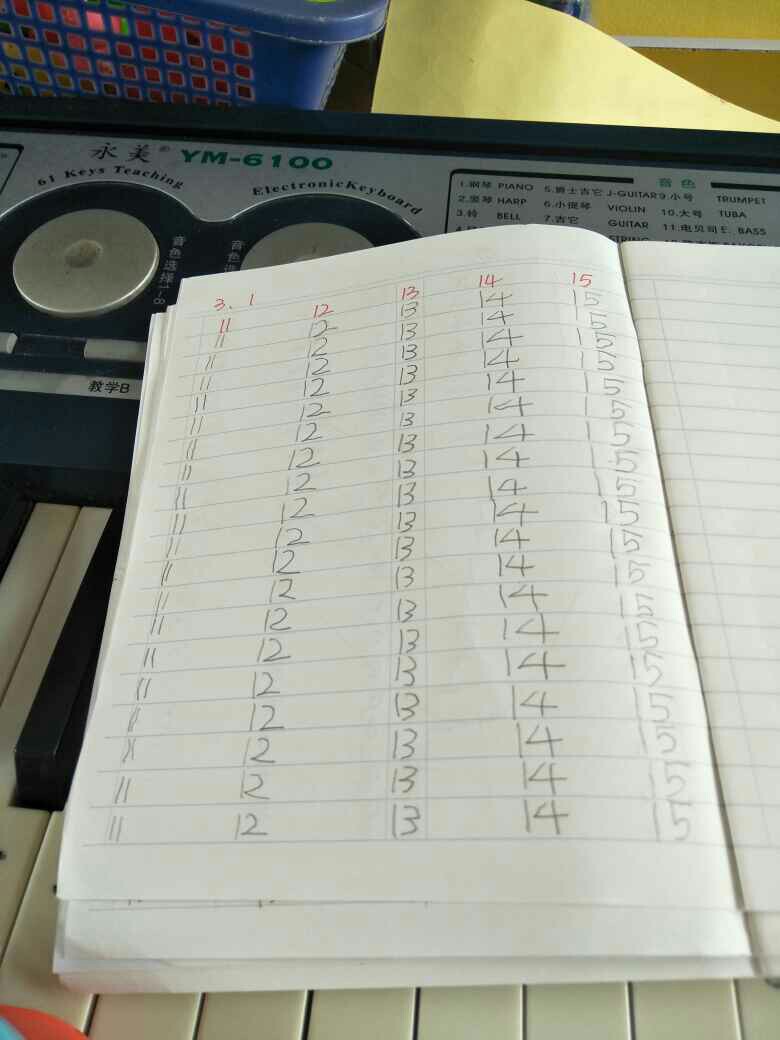 永美® YM-6100
61 Keys Teaching ElectronicKeyboard
音色
1.钢琴 PIANO 5.爵士吉它 J-GUITAR 9.小号 TRUMPET
2.竖琴 HARP 6.小提琴 VIOLIN 10.大号 TUBA
3.铃 BELL 7.吉它 GUITAR 11.电贝司 E. BASS
音色选择1-8
音色选
教学B
3.1
11 12 13 14 15
11 12 13 14 15
11 12 13 14 15
11 12 13 14 15
11 12 13 14 15
11 12 13 14 15
11 12 13 14 15
11 12 13 14 15
11 12 13 14 15
11 12 13 14 15
11 12 13 14 15
11 12 13 14 15
11 12 13 14 15
11 12 13 14 15
11 12 13 14 15
11 12 13 14 15
11 12 13 14 15
11 12 13 14 15
11 12 13 14 15
11 12 13 14 15